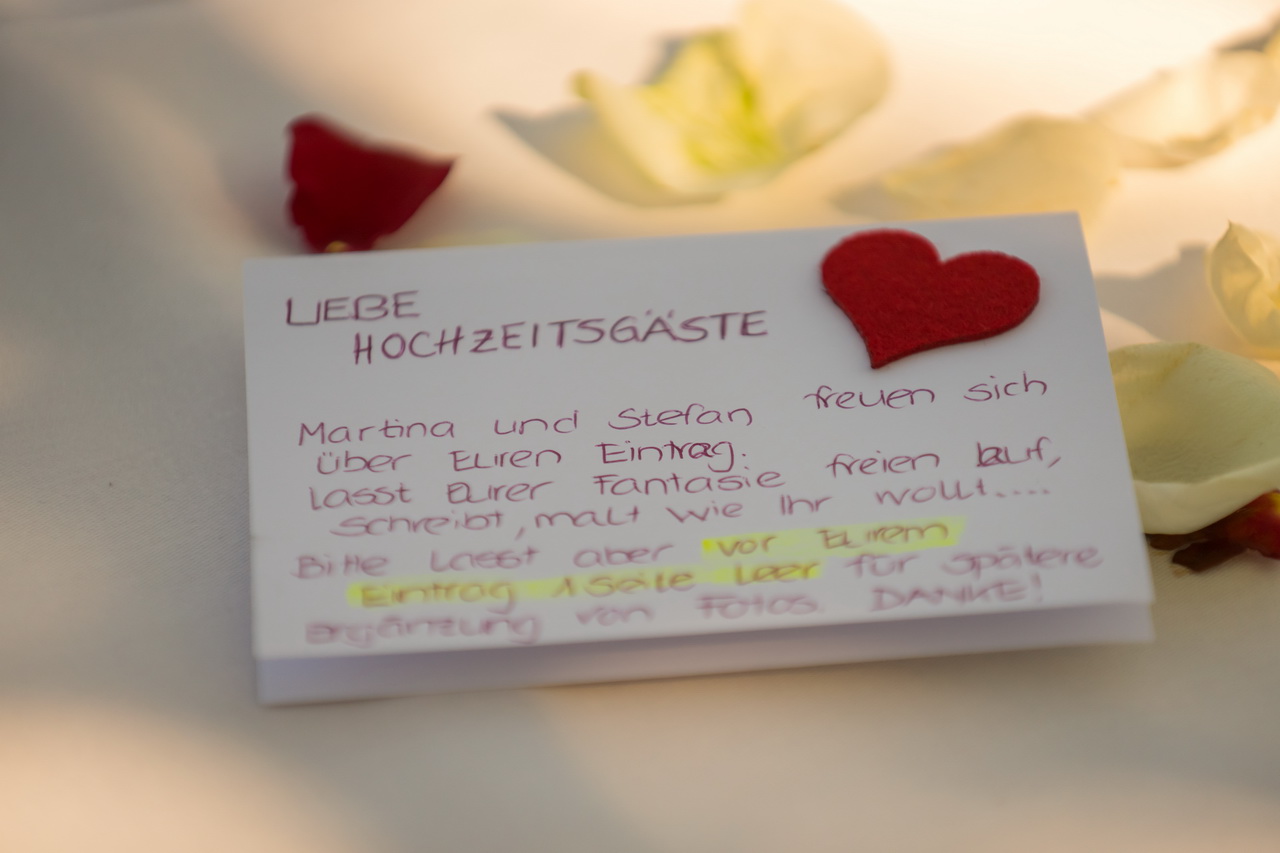 LIEBE
HOCHZEITSGÄSTE
Martina und Stefan freuen sich
über Euren Eintrag.
Lasst Eurer Fantasie freien Lauf,
schreibt, malt wie Ihr wollt....
Bitte lasst aber vor Eurem
Eintrag 1 Seite leer für spätere
Ergänzung von Fotos. DANKE!